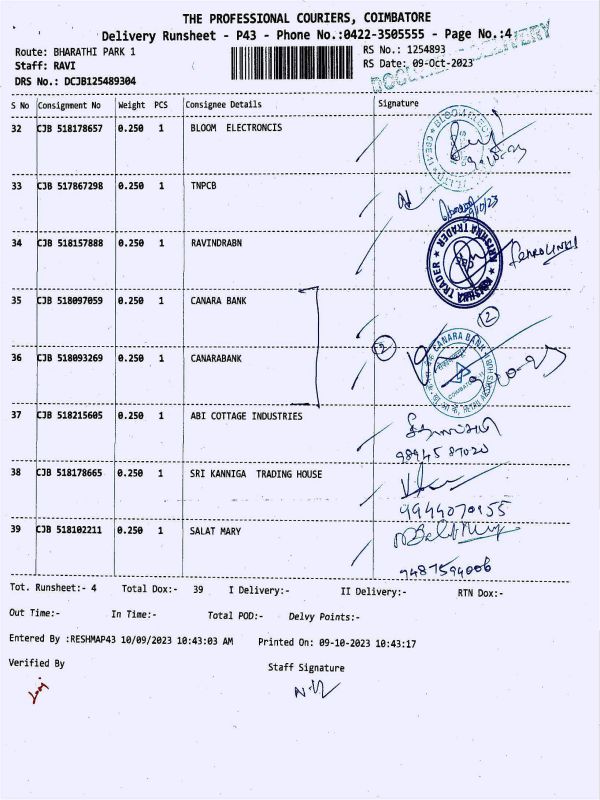 THE PROFESSIONAL COURIERS, COIMBATORE
Delivery Runsheet - P43 - Phone No.:0422-3505555 - Page No.:4
Route: BHARATHI PARK 1 RS No.: 1254893
Staff: RAVI RS Date: 09-Oct-2023
DRS No.: DCJB125489304
S No Consignment No Weight PCS Consignee Details Signature
32 CJB 518178657 0.250 1 BLOOM ELECTRONCIS
33 CJB 517867298 0.250 1 TNPCB
34 CJB 518157888 0.250 1 RAVINDRABN
KRISHNA TRADER
35 CJB 518097059 0.250 1 CANARA BANK
2
36 CJB 518093269 0.250 1 CANARABANK
2 CANARA BANK
37 CJB 518215605 0.250 1 ABI COTTAGE INDUSTRIES
98945 87020
38 CJB 518178665 0.250 1 SRI KANNIGA TRADING HOUSE
9944070155
39 CJB 518102211 0.250 1 SALAT MARY
9487594006
Tot. Runsheet:- 4 Total Dox:- 39 I Delivery:- II Delivery:- RTN Dox:-
Out Time:- In Time:- Total POD:- Delvy Points:-
Entered By :RESHMAP43 10/09/2023 10:43:03 AM Printed On: 09-10-2023 10:43:17
Verified By Staff Signature